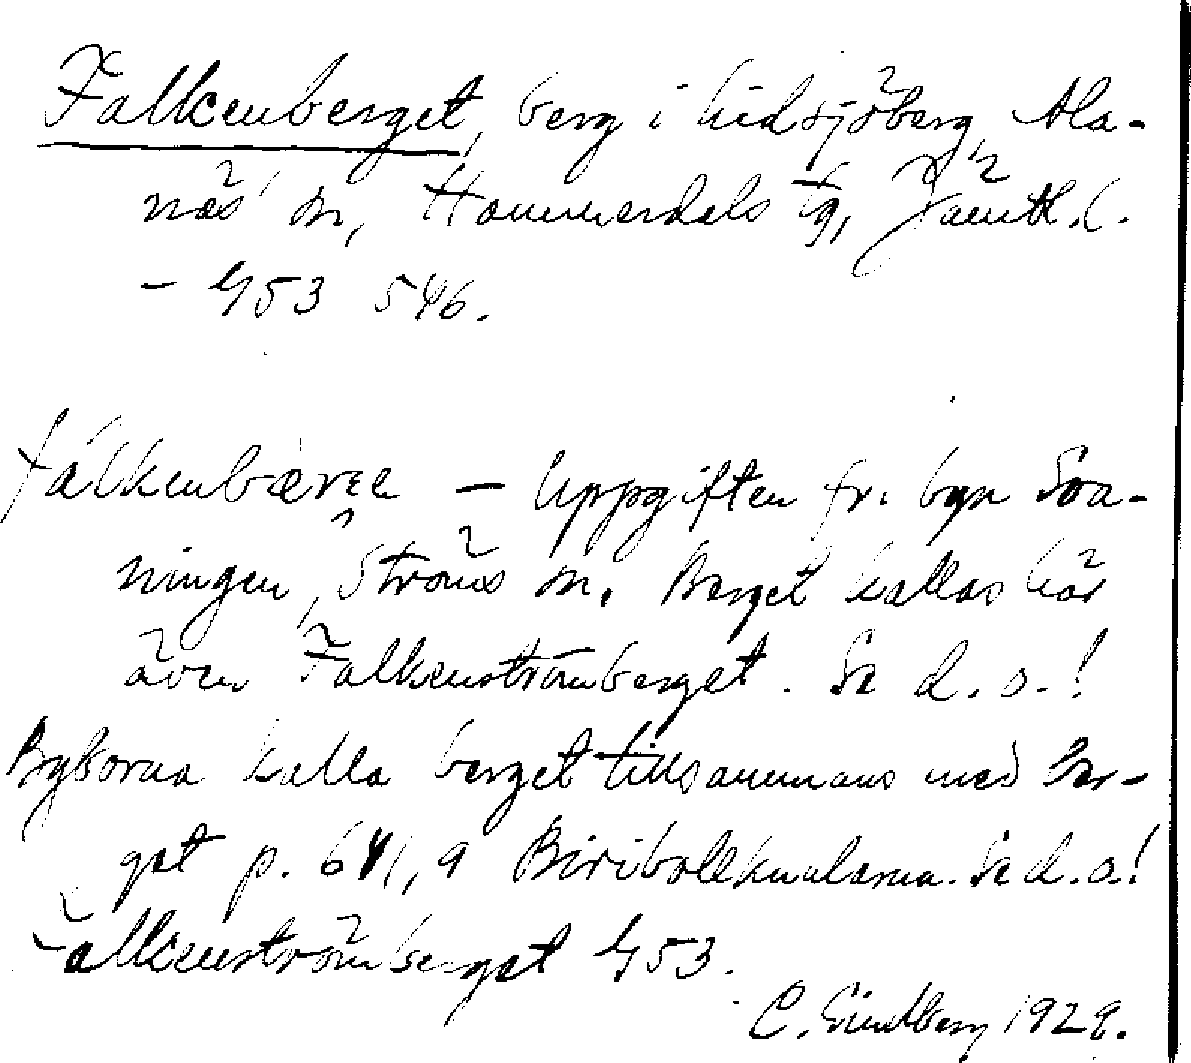 Falkenberget, berg i Lidsjöberg, Ala-
näs sn, Hammerdals tg, Jämtl. l.
– G53 546.
fálkenbærɛ – Uppgiften fr. byn Sva-
ningen, Ströms sn. Berget kallas här
även Falkenströmberget. Se d. o.!
Byborna kalla berget tillsammans med ber-
get p. 641,9 Biribollknularna. Se d. o.!
Falkenströmberget G53.
C. Lindberg 1929.